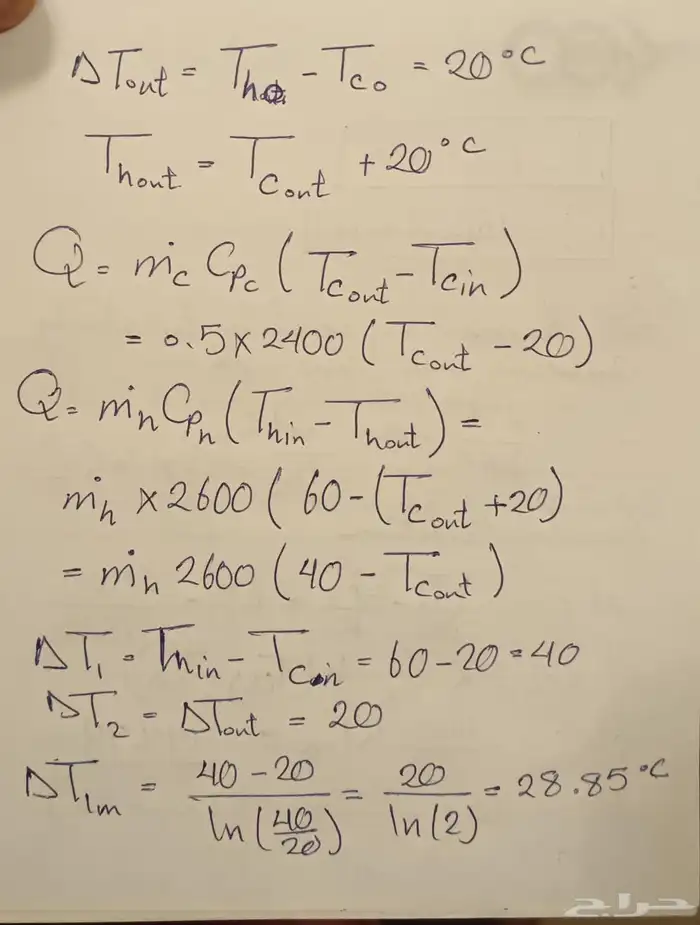 ΔTout = Tho - Tco = 20°C
Thout = Tcout + 20°C
Q = ṁc Cpc (Tcout - Tcin)
= 0.5 × 2400 (Tcout - 20)
Q = ṁh Cph (Thin - Thout) =
ṁh × 2600 (60 - (Tcout + 20)
= ṁh 2600 (40 - Tcout)
ΔT1 = Thin - Tcin = 60 - 20 = 40
ΔT2 = ΔTout = 20
ΔTlm = 40 - 20 / ln(40/20) = 20 / ln(2) = 28.85°C
حراج